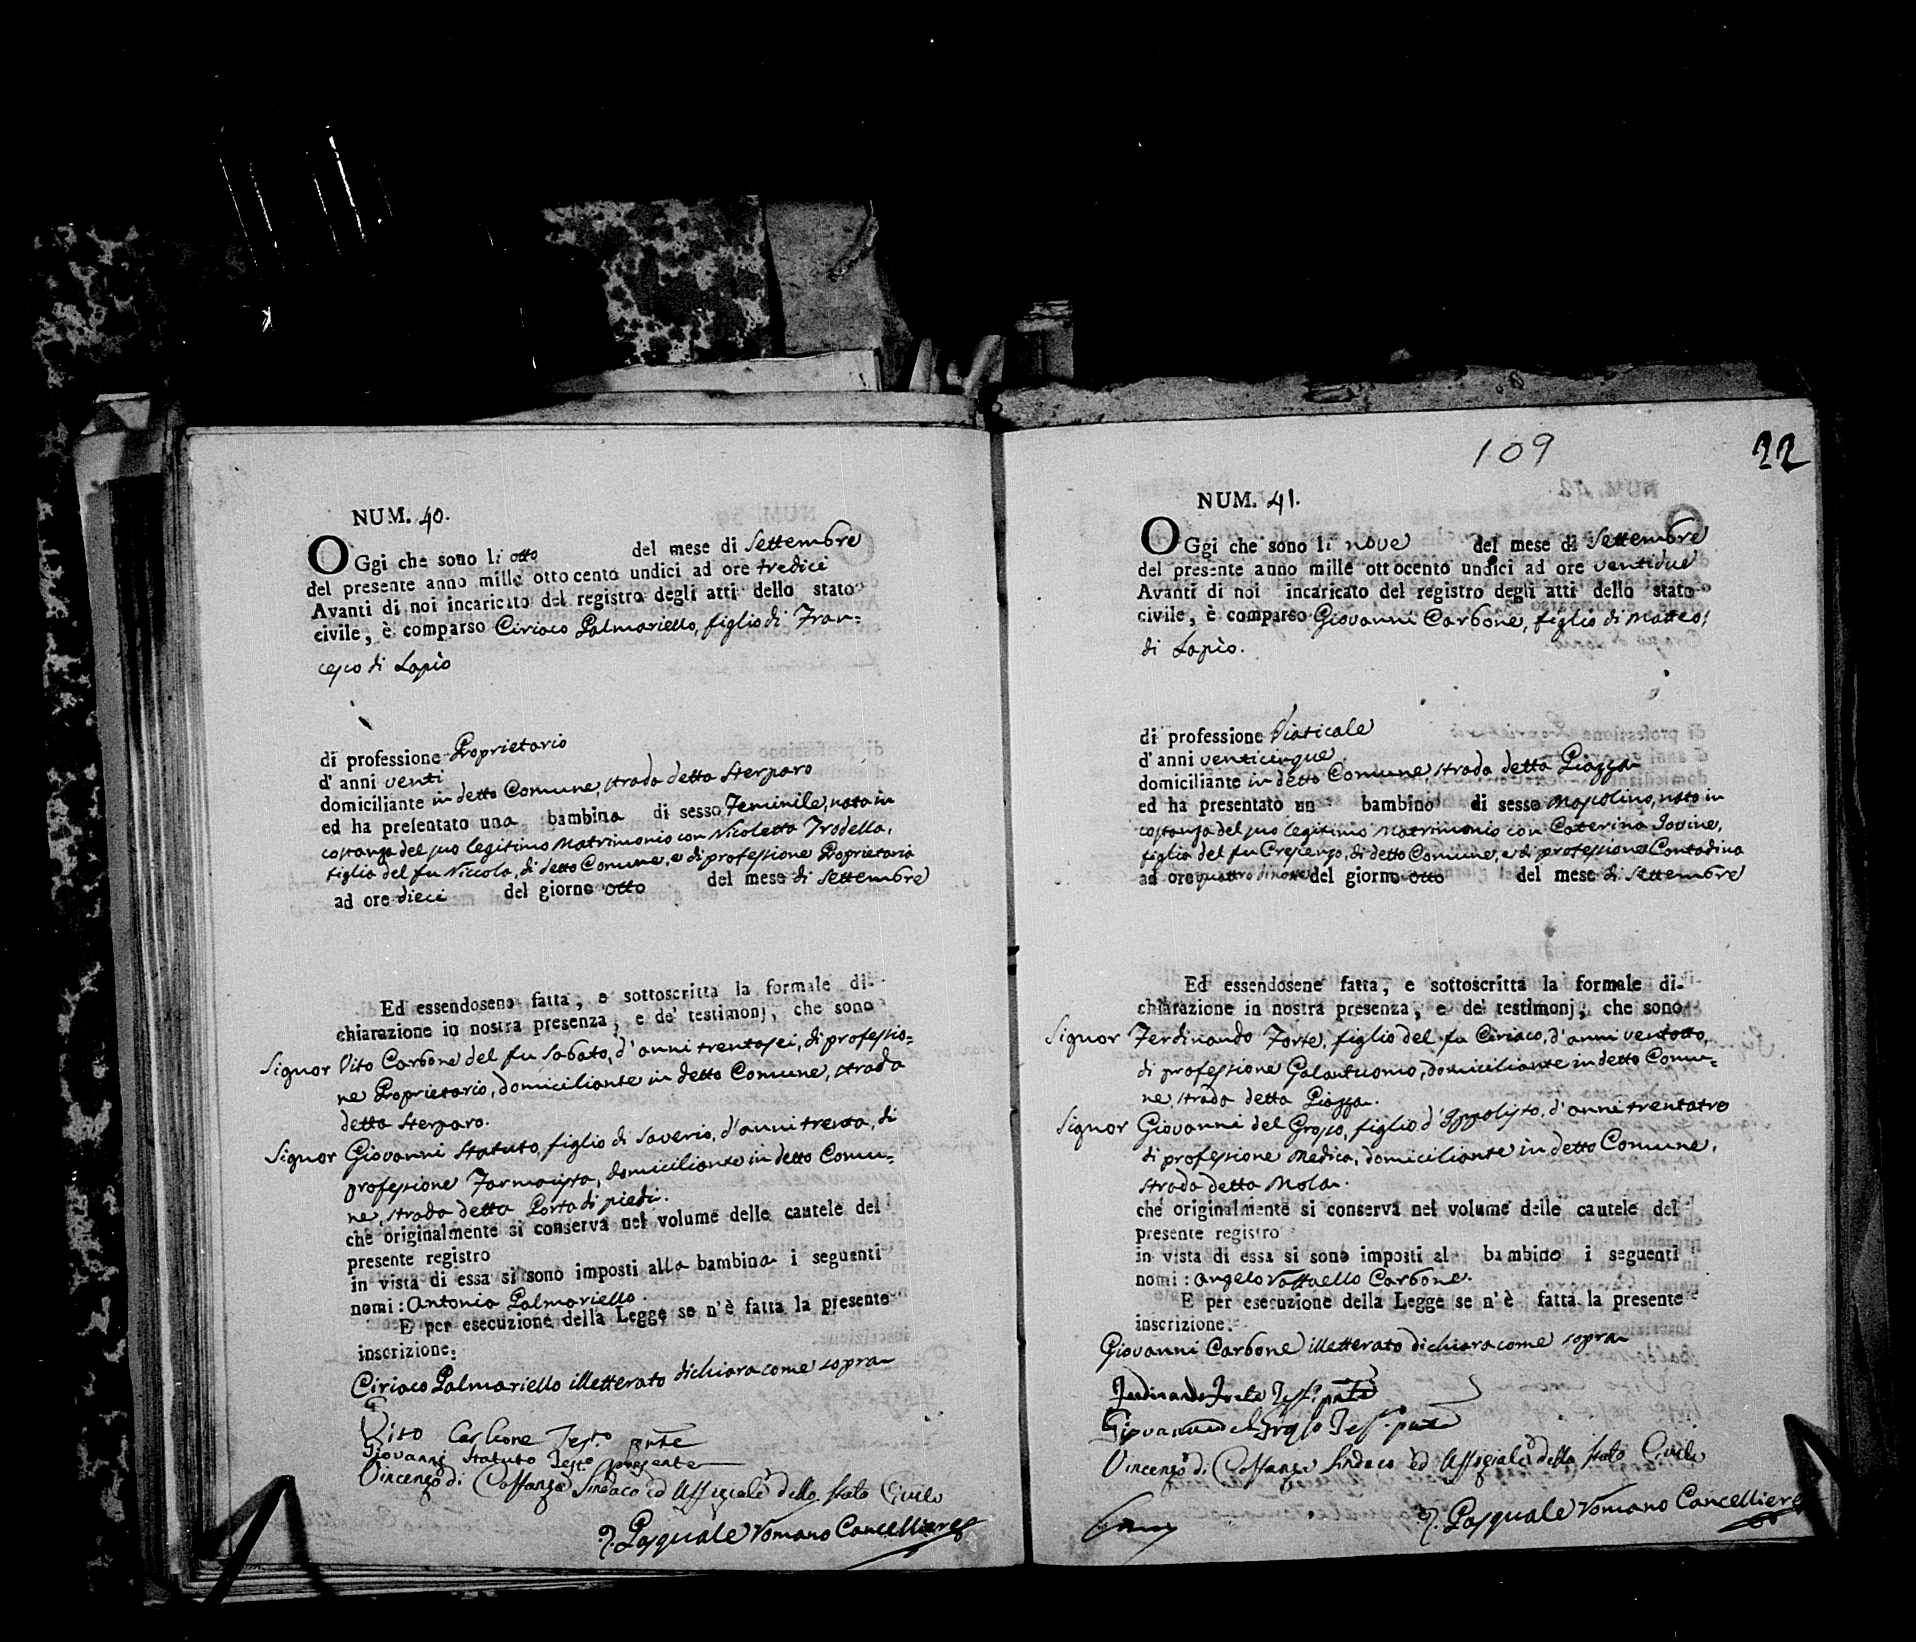 NUM. 40.
OGgi che sono li otto del mese di Settembre
del presente anno mille ottocento undici ad ore tredici
Avanti di noi incaricato del registro degli atti dello stato
civile, è comparso Ciriaco Palmariello, figlio di Fran-
cesco di Lapio
di professione Proprietario
d' anni venti
domiciliante in detto Comune, strada detta Sterparo
ed ha presentato una bambina di sesso Feminile, nata in
costanza del suo legitimo Matrimonio con Nicoletta Trodella,
figlia del fu Niccola, di detto Comune, e di professione Proprietaria
ad ore dieci del giorno otto del mese di Settembre
Ed essendosene fatta, e sottoscritta la formale di-
chiarazione in nostra presenza, e de' testimonj, che sono
Signor Vito Carbone del fu Sabato, d'anni trentasei, di professio=
ne Proprietario, domiciliante in detto Comune, strada
detta Sterparo.
Signor Giovanni Statuto, figlio di Saverio, d'anni trenta, di
professione Farmacista, domiciliante in detto Comu=
ne, strada detta Porta di piedi.
che originalmente si conserva nel volume delle cautele del
presente registro
in vista di essa si sono imposti alla bambina i seguenti
nomi: Antonia Palmariello.
E per esecuzione della Legge se n'è fatta la presente
inscrizione.
Ciriaco Palmariello illetterato dichiara come sopra
Vito Carbone Testo. pnte
Giovanni Statuto Testo. presente
Vincenzo di Costanza Sindaco ed Uffiziale dello stato Civile
Pasquale Romano Cancelliere
109
22
NUM. 41.
OGgi che sono li nove del mese di Settembre
del presente anno mille ottocento undici ad ore ventidue
Avanti di noi incaricato del registro degli atti dello stato
civile, è comparso Giovanni Carbone, figlio di Matteo,
di Lapio.
di professione Viaticale
d' anni venticinque
domiciliante in detto Comune, strada detta Piazza
ed ha presentato un bambino di sesso Mascolino, nato in
costanza del suo legitimo Matrimonio con Caterina Iovine,
figlia del fu Crescenzo, di detto Comune, e di professione Contadina
ad ore quattro di notte del giorno otto del mese di Settembre
Ed essendosene fatta, e sottoscritta la formale di-
chiarazione in nostra presenza, e de' testimonj, che sono
Signor Ferdinando Forte, figlio del fu Ciriaco, d'anni ventotto,
di professione Galantuomo, domiciliante in detto Comu=
ne, strada detta Piazza.
Signor Giovanni del Grosso, figlio d'Ippolisto, d'anni trentatre
di professione Medico, domiciliante in detto Comune,
strada detta Mola.
che originalmente si conserva nel volume delle cautele del
presente registro
in vista di essa si sono imposti al bambino i seguenti
nomi: Angelo Raffaello Carbone.
E per esecuzione della Legge se n'è fatta la presente
inscrizione.
Giovanni Carbone illetterato dichiara come sopra
Ferdinando Forte Testo. pnte
Giovanni del Grosso Testo. pnte
Vincenzo di Costanza Sindaco ed Uffiziale dello stato Civile
Pasquale Romano Cancelliere